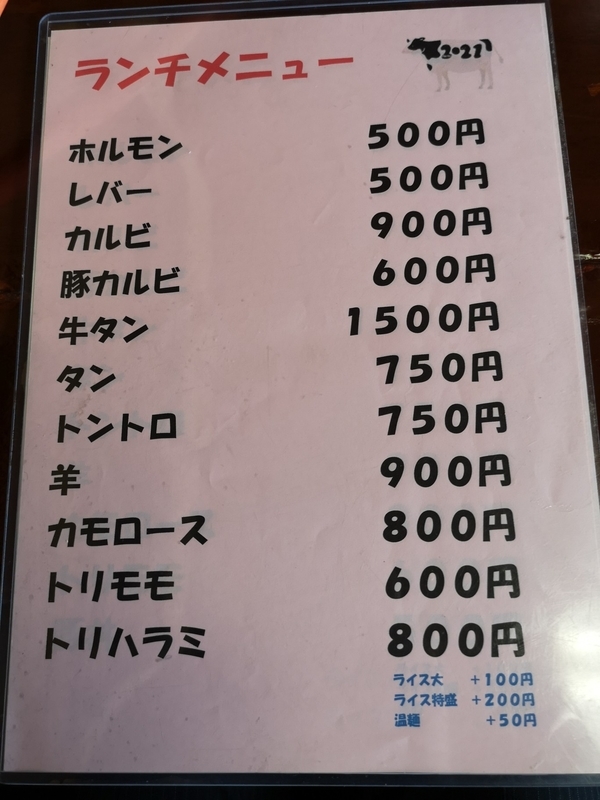 ランチメニュー 2021
ホルモン 500円
レバー 500円
カルビ 900円
豚カルビ 600円
牛タン 1500円
タン 750円
トントロ 750円
羊 900円
カモロース 800円
トリモモ 600円
トリハラミ 800円
ライス大 +100円
ライス特盛 +200円
温麺 +50円